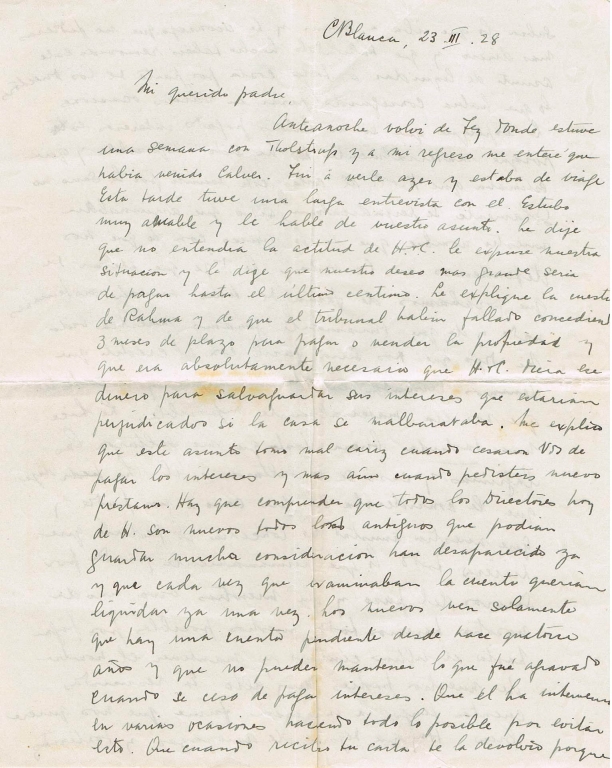 CBlanca, 23.III.28
Mi querido padre,
Anteanoche volvi de Fez donde estuve
una semana con Tholstrup y a mi regreso me enteré que
habia venido Calver. Fui á verle ayer y estaba de viaje
Esta tarde tuve una larga entrevista con el. Estubo
muy amable y le hable de vuestro asunto. Le dije
que no entendia la actitud de H.&C. le expuse nuestra
situacion y le dige que nuestro deseo mas grande seria
de pagar hasta el ultimo centimo. Le explique la cuest
de Rahma y de que el tribunal habia fallado concediend
3 meses de plazo para pagar o vender la propiedad y
que era absolutamente necesario que H.&C. diera ese
dinero para salvaguardar sus intereses que estarian
perjudicados si la casa se malbarataba. Me explico
que este asunto tomo mal cariz cuando cesaron Vds de
pagar los intereses y mas aun cuando pedisteis nuevo
préstamo. Hay que comprender que todos los Directores hoy
de H. son nuevos todos los antiguos que podian
guardar mucha consideracion han desaparecido ya
y que cada vez que examinaban la cuenta querian
liquidar ya una vez. Los nuevos ven solamente
que hay una cuenta pendiente desde hace quatorce
años y que no pueden mantener lo que fué agravado
cuando se ceso de pagar intereses. Que él ha interveni
en varias ocasiones haciendo todo lo posible por evitar
esto. Que cuando recibio tu carta te la devolvio porque